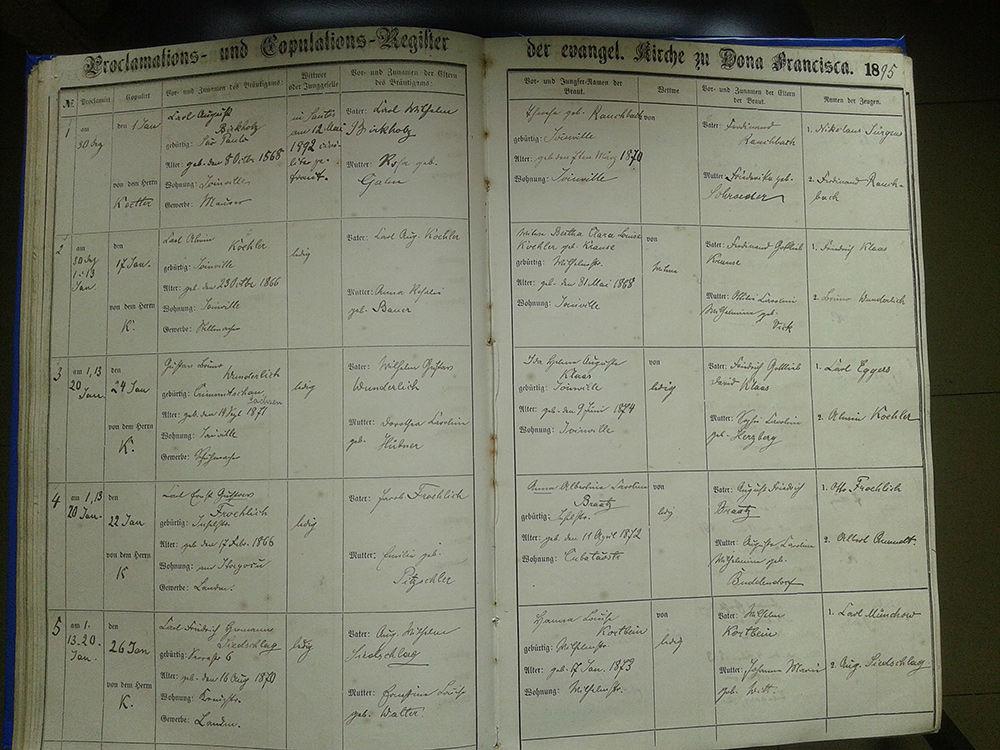 Proclamations- und Copulations-Register
der evangel. Kirche zu Dona Francisca. 1895
№ Proclamirt Copulirt Vor- und Zunamen des Bräutigams Wittwer oder Junggeselle Vor- und Zunamen der Eltern des Bräutigams.
Vor- und Jungfer-Namen der Braut. Wittwe Vor- und Zunamen der Eltern der Braut. Namen der Zeugen.
1 am 30 Dez
den 1 Jan
von dem Herrn
Koelter
Carl August
Birkholz
gebürtig: Sao Paulo
Alter: geb. den 8 Octbr 1868
Wohnung: Joinville
Gewerbe: Maurer
in Santos
am 12 Mai
1892
Vater: Carl Wilhelm
Birkholz
Mutter: Rosa geb.
gebürtig: Joinville
Alter: geb. den 7ten März 1870
Wohnung: Joinville
von
Vater: Ferdinand
Rauchbach
Mutter Friederike geb.
Schroeder
1. Nikolaus Jürgens
2. Ferdinand Rauch-
bach
2 am
30 Dez
1. 13
Jan
den
17 Jan.
von dem Herrn
K.
Carl Alwin
Köehler
gebürtig: Joinville
Alter: geb. den 23 Octbr 1866
Wohnung: Joinville
Gewerbe: Stellmacher
ledig
Vater: Carl Aug. Koehler
Mutter: Anna Rosalie
geb. Bauer
Wittwe Bertha Clara Louise
Koehler geb. Krause
gebürtig: Wilhelmstr.
Alter: geb. den 31 Mai 1868
Wohnung: Joinville
von
Wittwe
Vater: Ferdinand Gottlieb
Krause
Mutter: Ottilie Caroline
Wilhelmine geb.
1. Friedrich Klaas
2. Bruno Wunderlich
3 am 1, 13
20
Jan.
den
24 Jan
von dem Herrn
K.
Gustav Bruno
Wunderlich
gebürtig: Crimmitschau
Sachsen
Alter: geb. den 19 Sept 1871
Wohnung: Joinville
Gewerbe: Schuhmacher
ledig
Vater: Wilhelm Gustav
Wunderlich
Mutter: Dorothea Caroline
geb. Hübner
Ida Helene Auguste
Klaas
gebürtig: Joinville
Alter: geb. den 9 Juni 1874
Wohnung: Joinville
von
ledig
Vater: Friedrich Gottlieb
David Klaas
Mutter: Sophie Caroline
geb. Herzberg
1. Carl Eggers
2. Alwin Koehler
4 am 1, 13
20 Jan.
den
22 Jan
von dem Herrn
K
Carl Ernst Gustav
Froehlich
gebürtig: Inselstr.
Alter: geb. den 17 Febr. 1866
Wohnung:
Gewerbe: Landm.
ledig
Vater: Jacob Froehlich
Mutter: Emilie geb.
Pitzschler
Anna Albertine Caroline
Braatz
gebürtig: Inselstr.
Alter: geb. den 11 April 1872
Wohnung: Cubataostr
von
ledig
Vater: August Friedrich
Braatz
Mutter: Auguste Caroline
Wilhelmine geb.
Buddendorf
1. Otto Froehlich
2. Albert
5 am 1.
13. 20.
Jan.
den
26 Jan
von dem Herrn
K.
Carl Friedrich Hermann
Siedschlag
gebürtig:
Alter: geb. den 16 Aug 1870
Wohnung:
Gewerbe: Landm.
ledig
Vater: Aug. Wilhelm
Siedschlag
Mutter: Ernestine Louise
geb. Walter.
Hanna Louise
Kortbein
gebürtig: Wilhelmstr.
Alter: geb. 17 Jan. 1873
Wohnung: Wilhelmstr.
von
ledig
Vater: Wilhelm
Kortbein
Mutter: Johanne Marie
geb. Witt.
1. Carl Münchow
2. Aug. Siedschlag